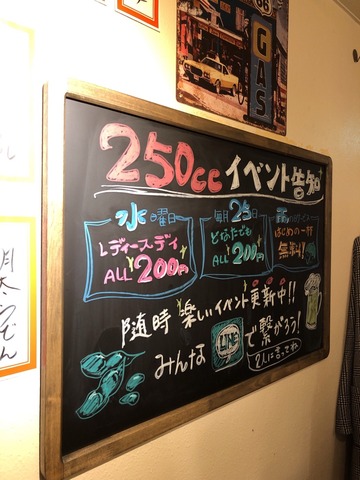 GAS
250cc イベント告知
水曜日
レディースデイ
ALL 200円
毎月25日
どなたでも
ALL 200円
はじめの一杯
無料!
随時 楽しいイベント更新中!!
みんな LINE で繋がろう!
2人に言ってね
月